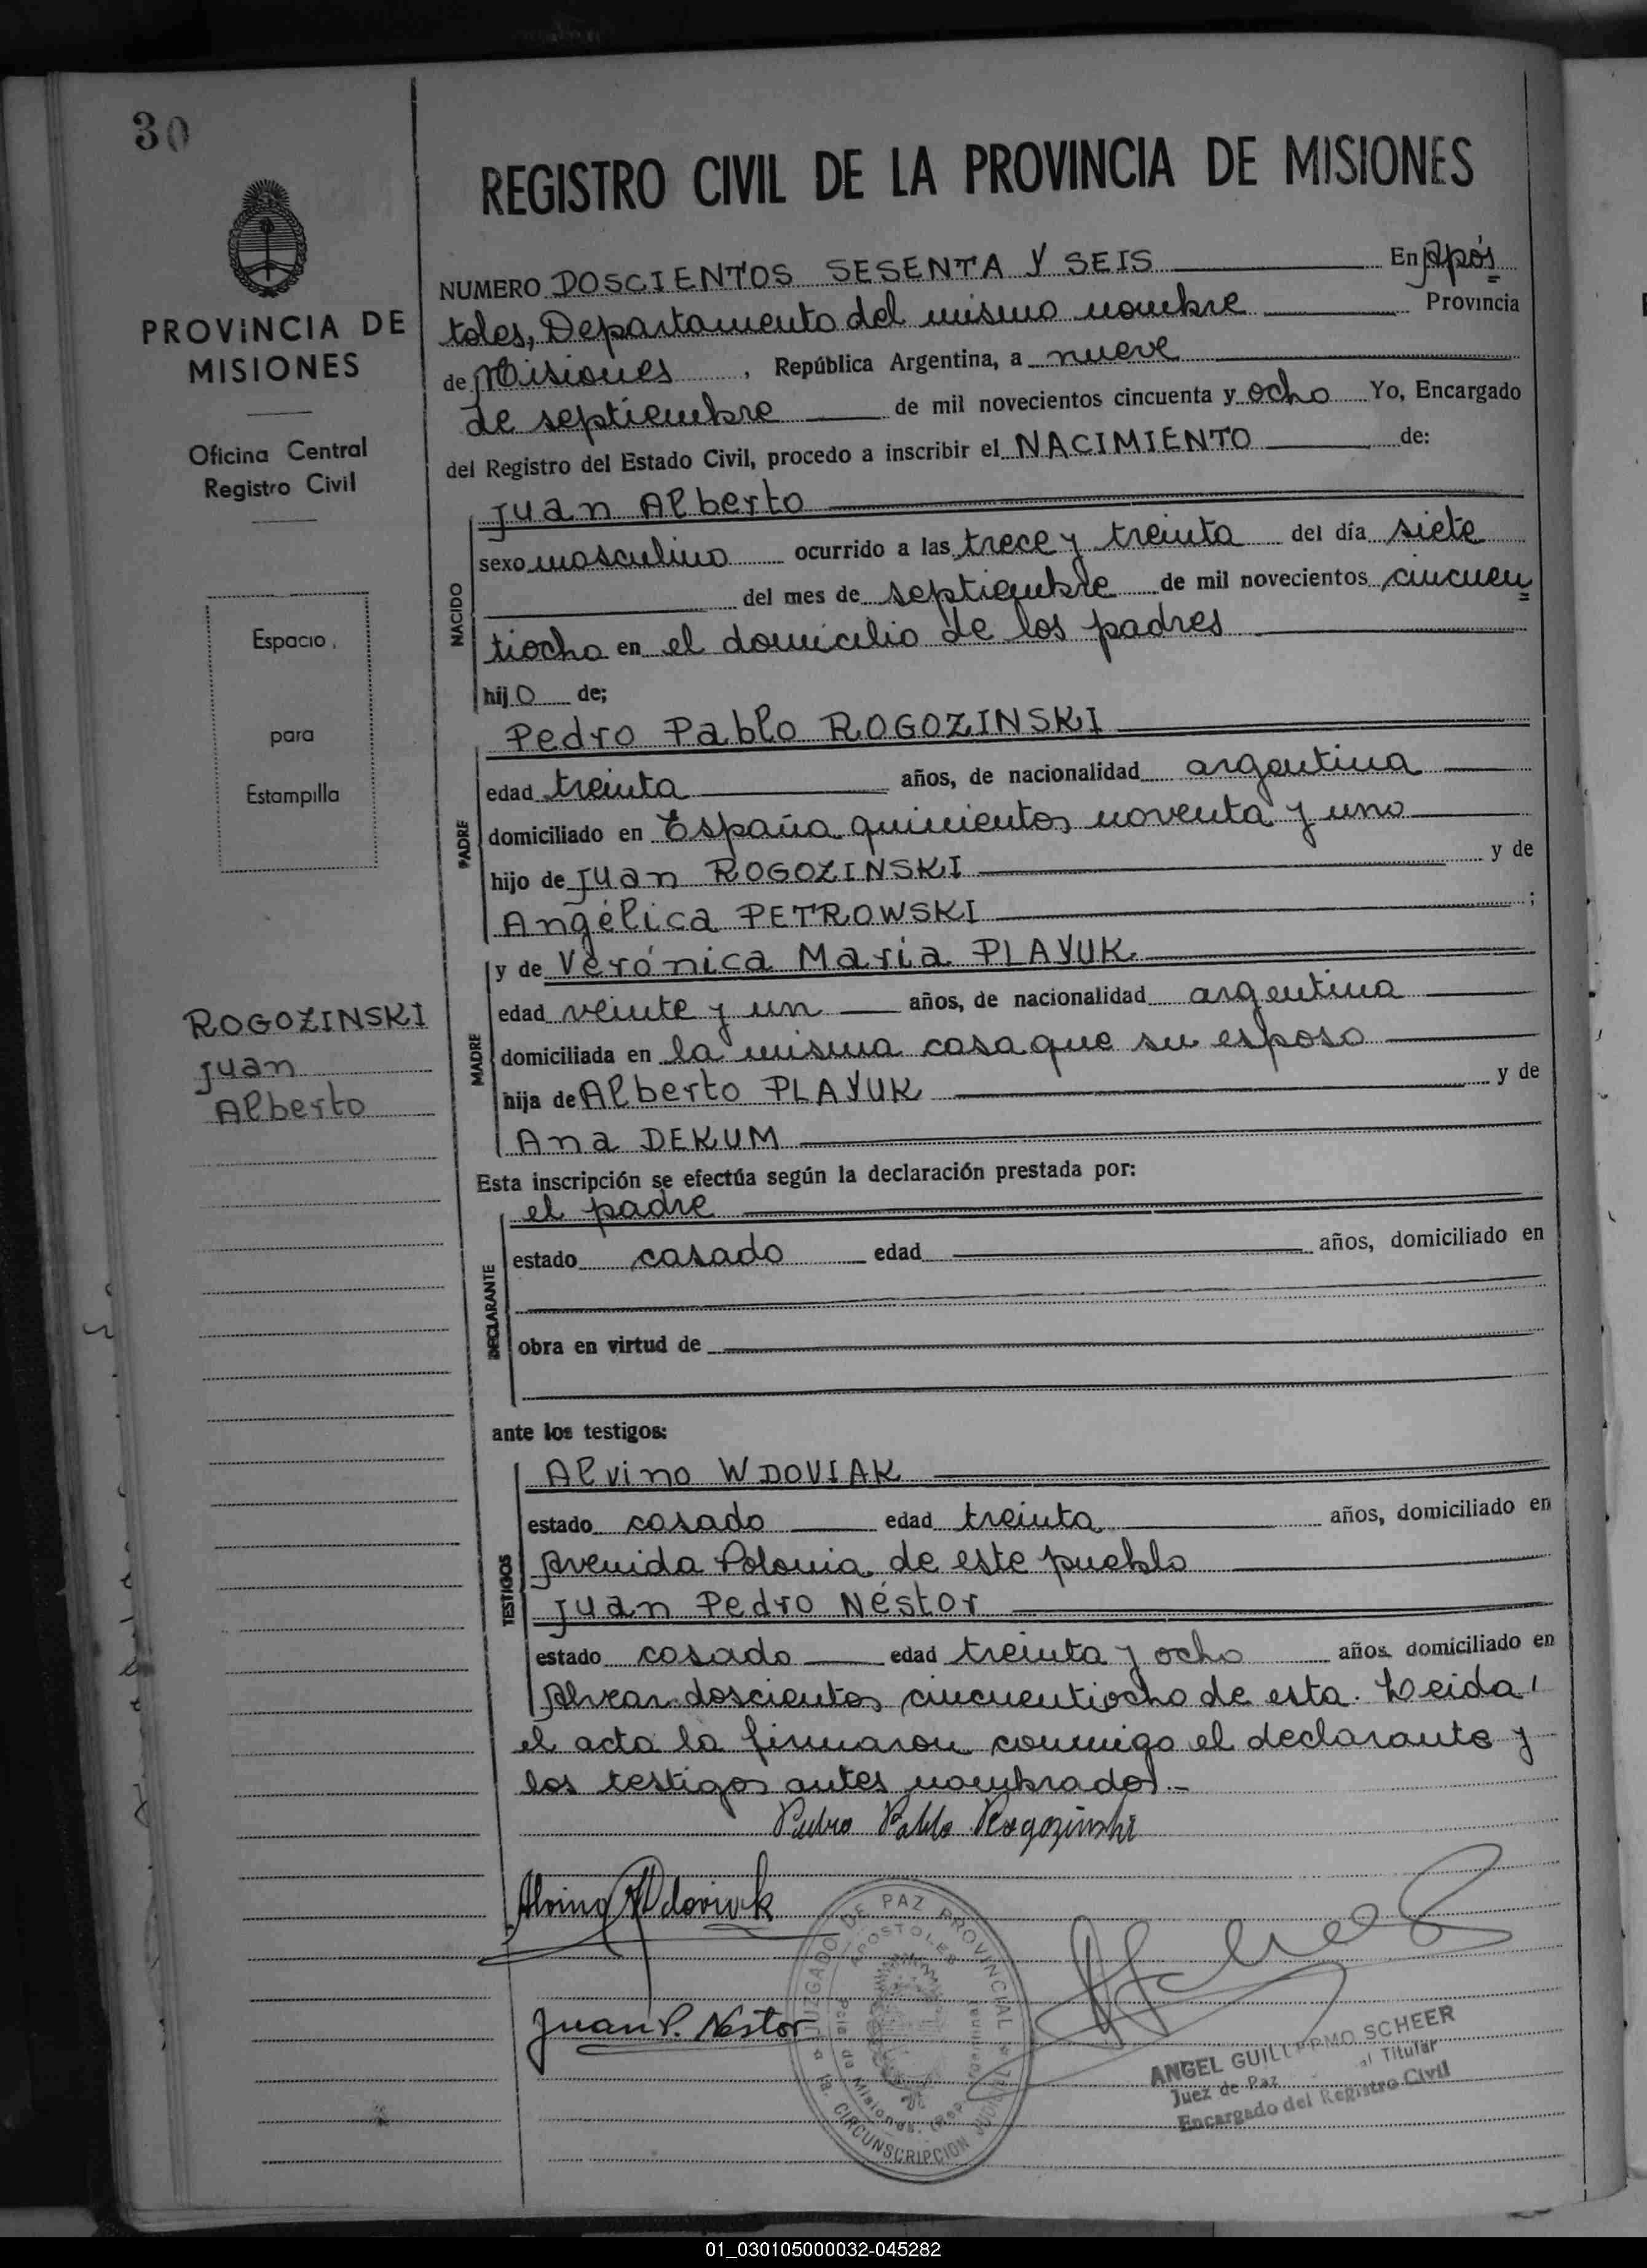 30
REGISTRO CIVIL DE LA PROVINCIA DE MISIONES
PROVINCIA DE
MISIONES
Oficina Central
Registro Civil
Espacio
para
Estampilla
ROGOZINSKI
Juan
Alberto
NUMERO DOSCIENTOS SESENTA Y SEIS En Após
toles, Departamento del mismo nombre Provincia
de Misiones, República Argentina, a nueve
de septiembre de mil novecientos cincuenta y ocho Yo, Encargado
del Registro del Estado Civil, procedo a inscribir el NACIMIENTO de:
NACIDO
Juan Alberto
sexo masculino ocurrido a las trece y treinta del día siete
del mes de septiembre de mil novecientos cincuen
tiocho en el domicilio de los padres
hijo de;
PADRE
Pedro Pablo ROGOZINSKI
edad treinta años, de nacionalidad argentina
domiciliado en España quinientos noventa y uno
hijo de Juan ROGOZINSKI y de
Angélica PETROWSKI ;
MADRE
y de Verónica Maria PLAYUK
edad veinte y un años, de nacionalidad argentina
domiciliada en la misma casa que su esposo
hija de Alberto PLAYUK y de
Ana DEKUM
Esta inscripción se efectúa según la declaración prestada por:
DECLARANTE
el padre
estado casado edad años, domiciliado en
obra en virtud de
ante los testigos:
TESTIGOS
Alvino WDOVIAK
estado casado edad treinta años, domiciliado en
Avenida Polonia de este pueblo
Juan Pedro Néstor
estado casado edad treinta y ocho años domiciliado en
Alvear doscientos cincuentiocho de esta. Leida
el acta la firmaron conmigo el declarante y
los testigos antes nombrados.-
Pedro Pablo Rogozinski
Alvino Wdoviuk
Juan P. Néstor
JUZGADO DE PAZ PROVINCIAL
APOSTOLES
Pcia de Misiones
1a. CIRCUNSCRIPCION JUDICIAL
ANGEL GUILLERMO SCHEER
Juez de Paz Titular
Encargado del Registro Civil
01_030105000032-045282